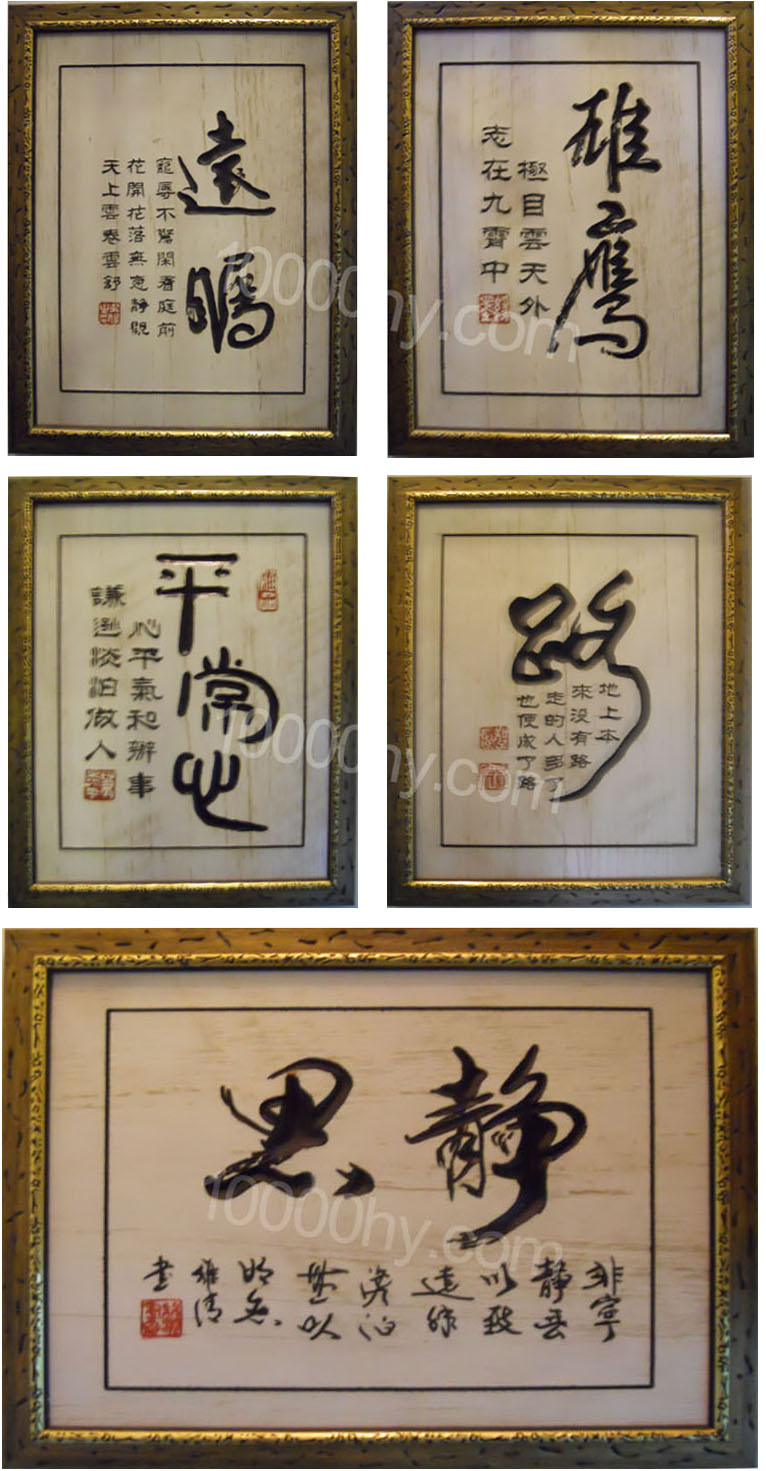 遠矚
寵辱不驚閑看庭前
花開花落無意靜觀
天上雲卷雲舒
10000hy.com
雄鷹
極目雲天外
志在九霄中
平常心
心平氣和辦事
謙遜淡泊做人
10000hy.com
路
地上本
來沒有路
走的人多了
也便成了路
静思
非寧
静無
以致
遠非
澹泊
無以
明志
維清
書
10000hy.com